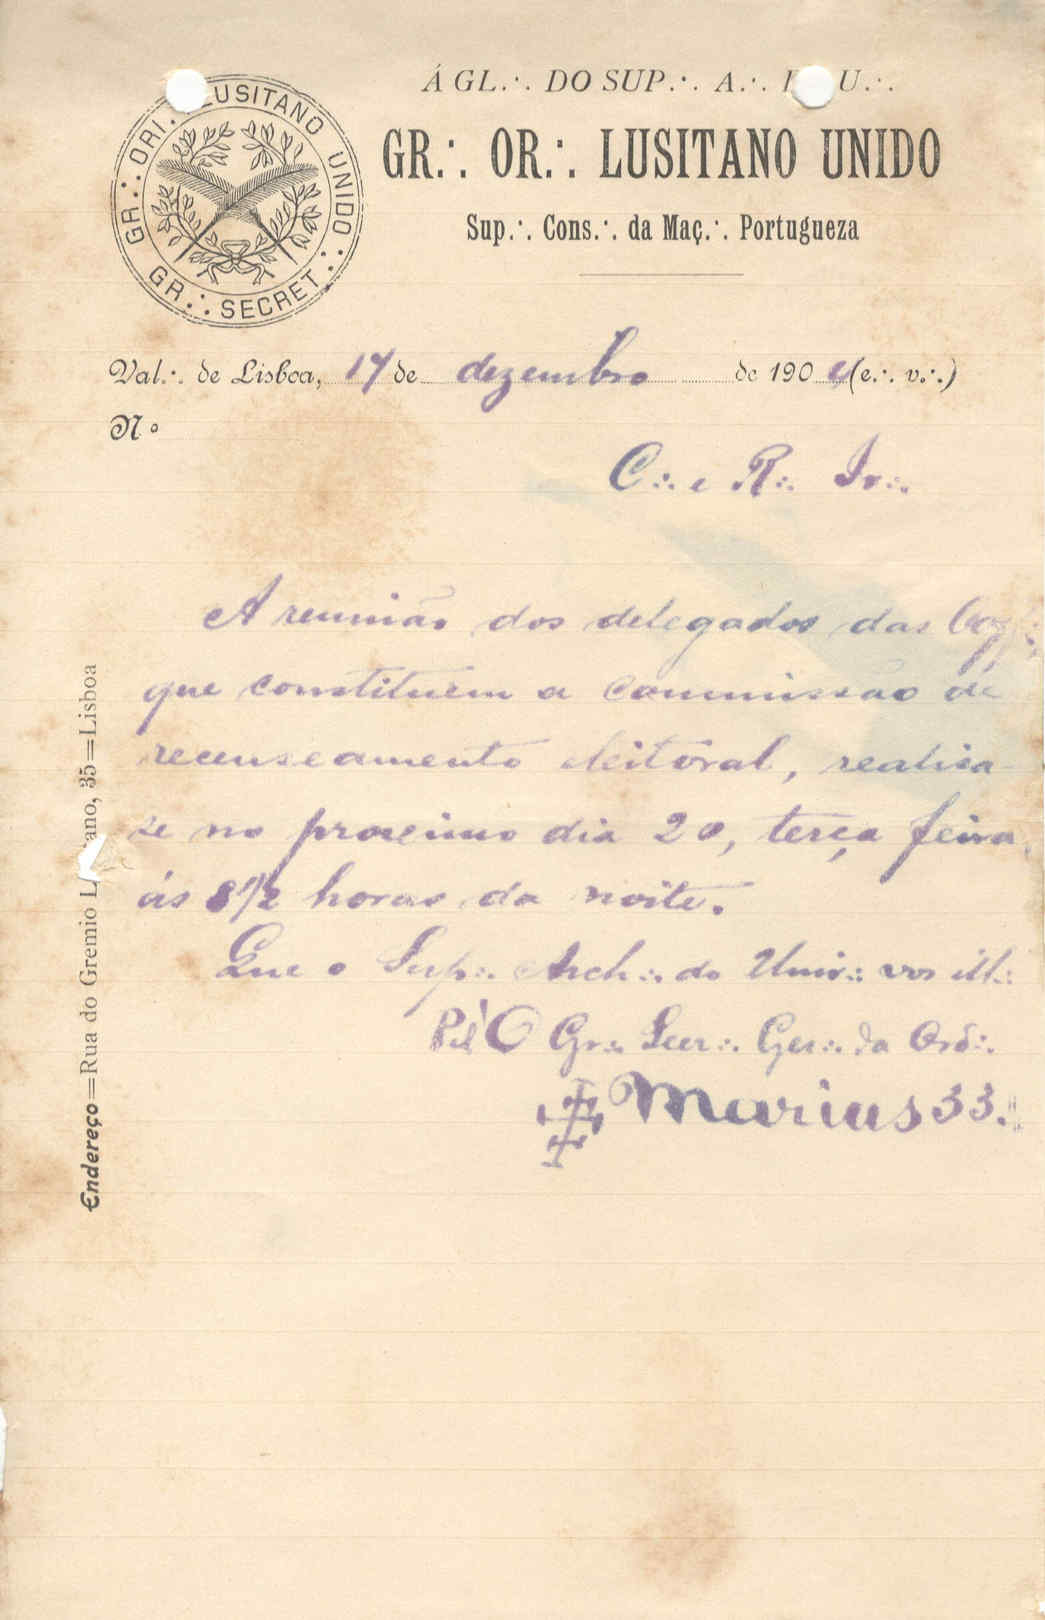 GR.·. ORI.·. LUSITANO UNIDO.·.
GR.·. SECRET.·.
Á GL.·. DO SUP.·. A.·. U.·.
GR.·. OR.·. LUSITANO UNIDO
Sup.·. Cons.·. da Maç.·. Portugueza
Val.·. de Lisboa, 17 de dezembro de 1904 (e.·. v.·.)
Nº
C.·. e R.·. Ir.·.
A reunião dos delegados das
que constituem a commissão de
recenseamento eleitoral, realisa-
se no proximo dia 20, terça feira,
ás 8 1/2 horas da noite.
Que o Sup.·. Arch.·. do Univ.·. vos ill.·.
Pel'O Gr.·. Secr.·. Ger.·. da Ord.·.
Marius 33.·.
Endereço=Rua do Gremio L ano, 35=Lisboa